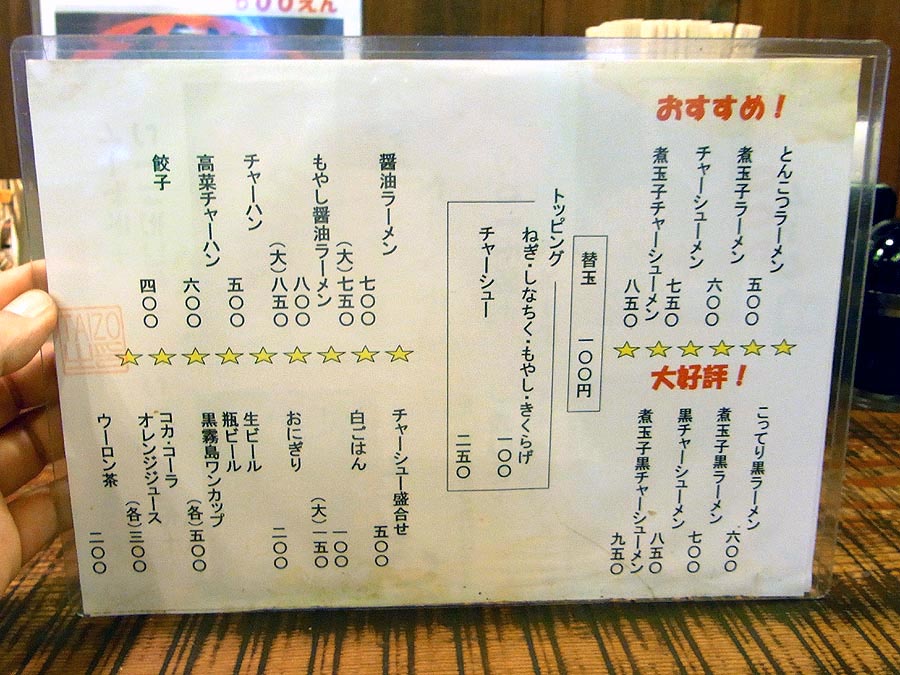 ００えん
おすすめ！
とんこつラーメン 五〇〇
煮玉子ラーメン 六〇〇
チャーシューメン 七五〇
煮玉子チャーシューメン 八五〇
大好評！
こってり黒ラーメン 六〇〇
煮玉子黒ラーメン 七〇〇
黒チャーシューメン 八五〇
煮玉子黒チャーシューメン 九五〇
替玉 一〇〇円
トッピング
ねぎ・しなちく・もやし・きくらげ
一〇〇
チャーシュー 二五〇
醤油ラーメン 七〇〇
（大）七五〇
もやし醤油ラーメン 八〇〇
（大）八五〇
チャーハン 五〇〇
高菜チャーハン 六〇〇
餃子 四〇〇
チャーシュー盛合せ 五〇〇
白ごはん 一〇〇
（大）一五〇
おにぎり 二〇〇
生ビール
瓶ビール
黒霧島ワンカップ （各）五〇〇
コカ・コーラ
オレンジジュース （各）三〇〇
ウーロン茶 二〇〇
TAIZO